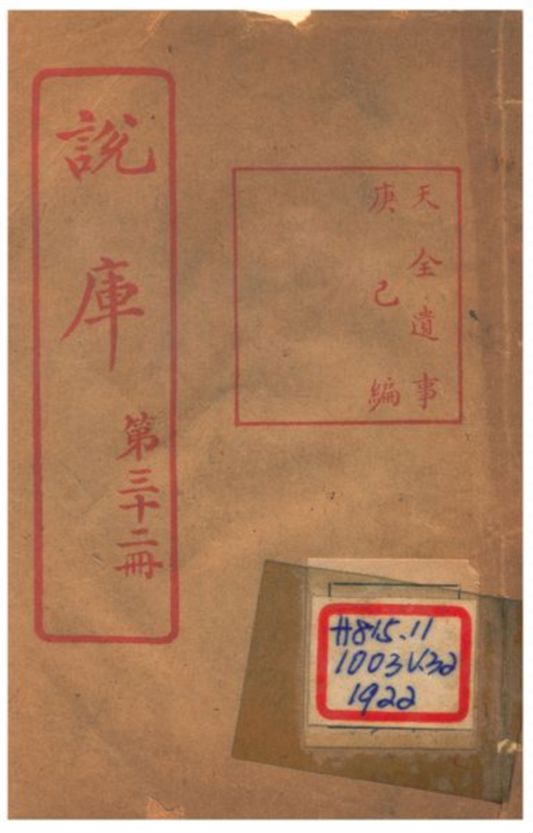 說庫
第三十二冊
天全遺事
庚己編
H815.11
1003 V.32
1922